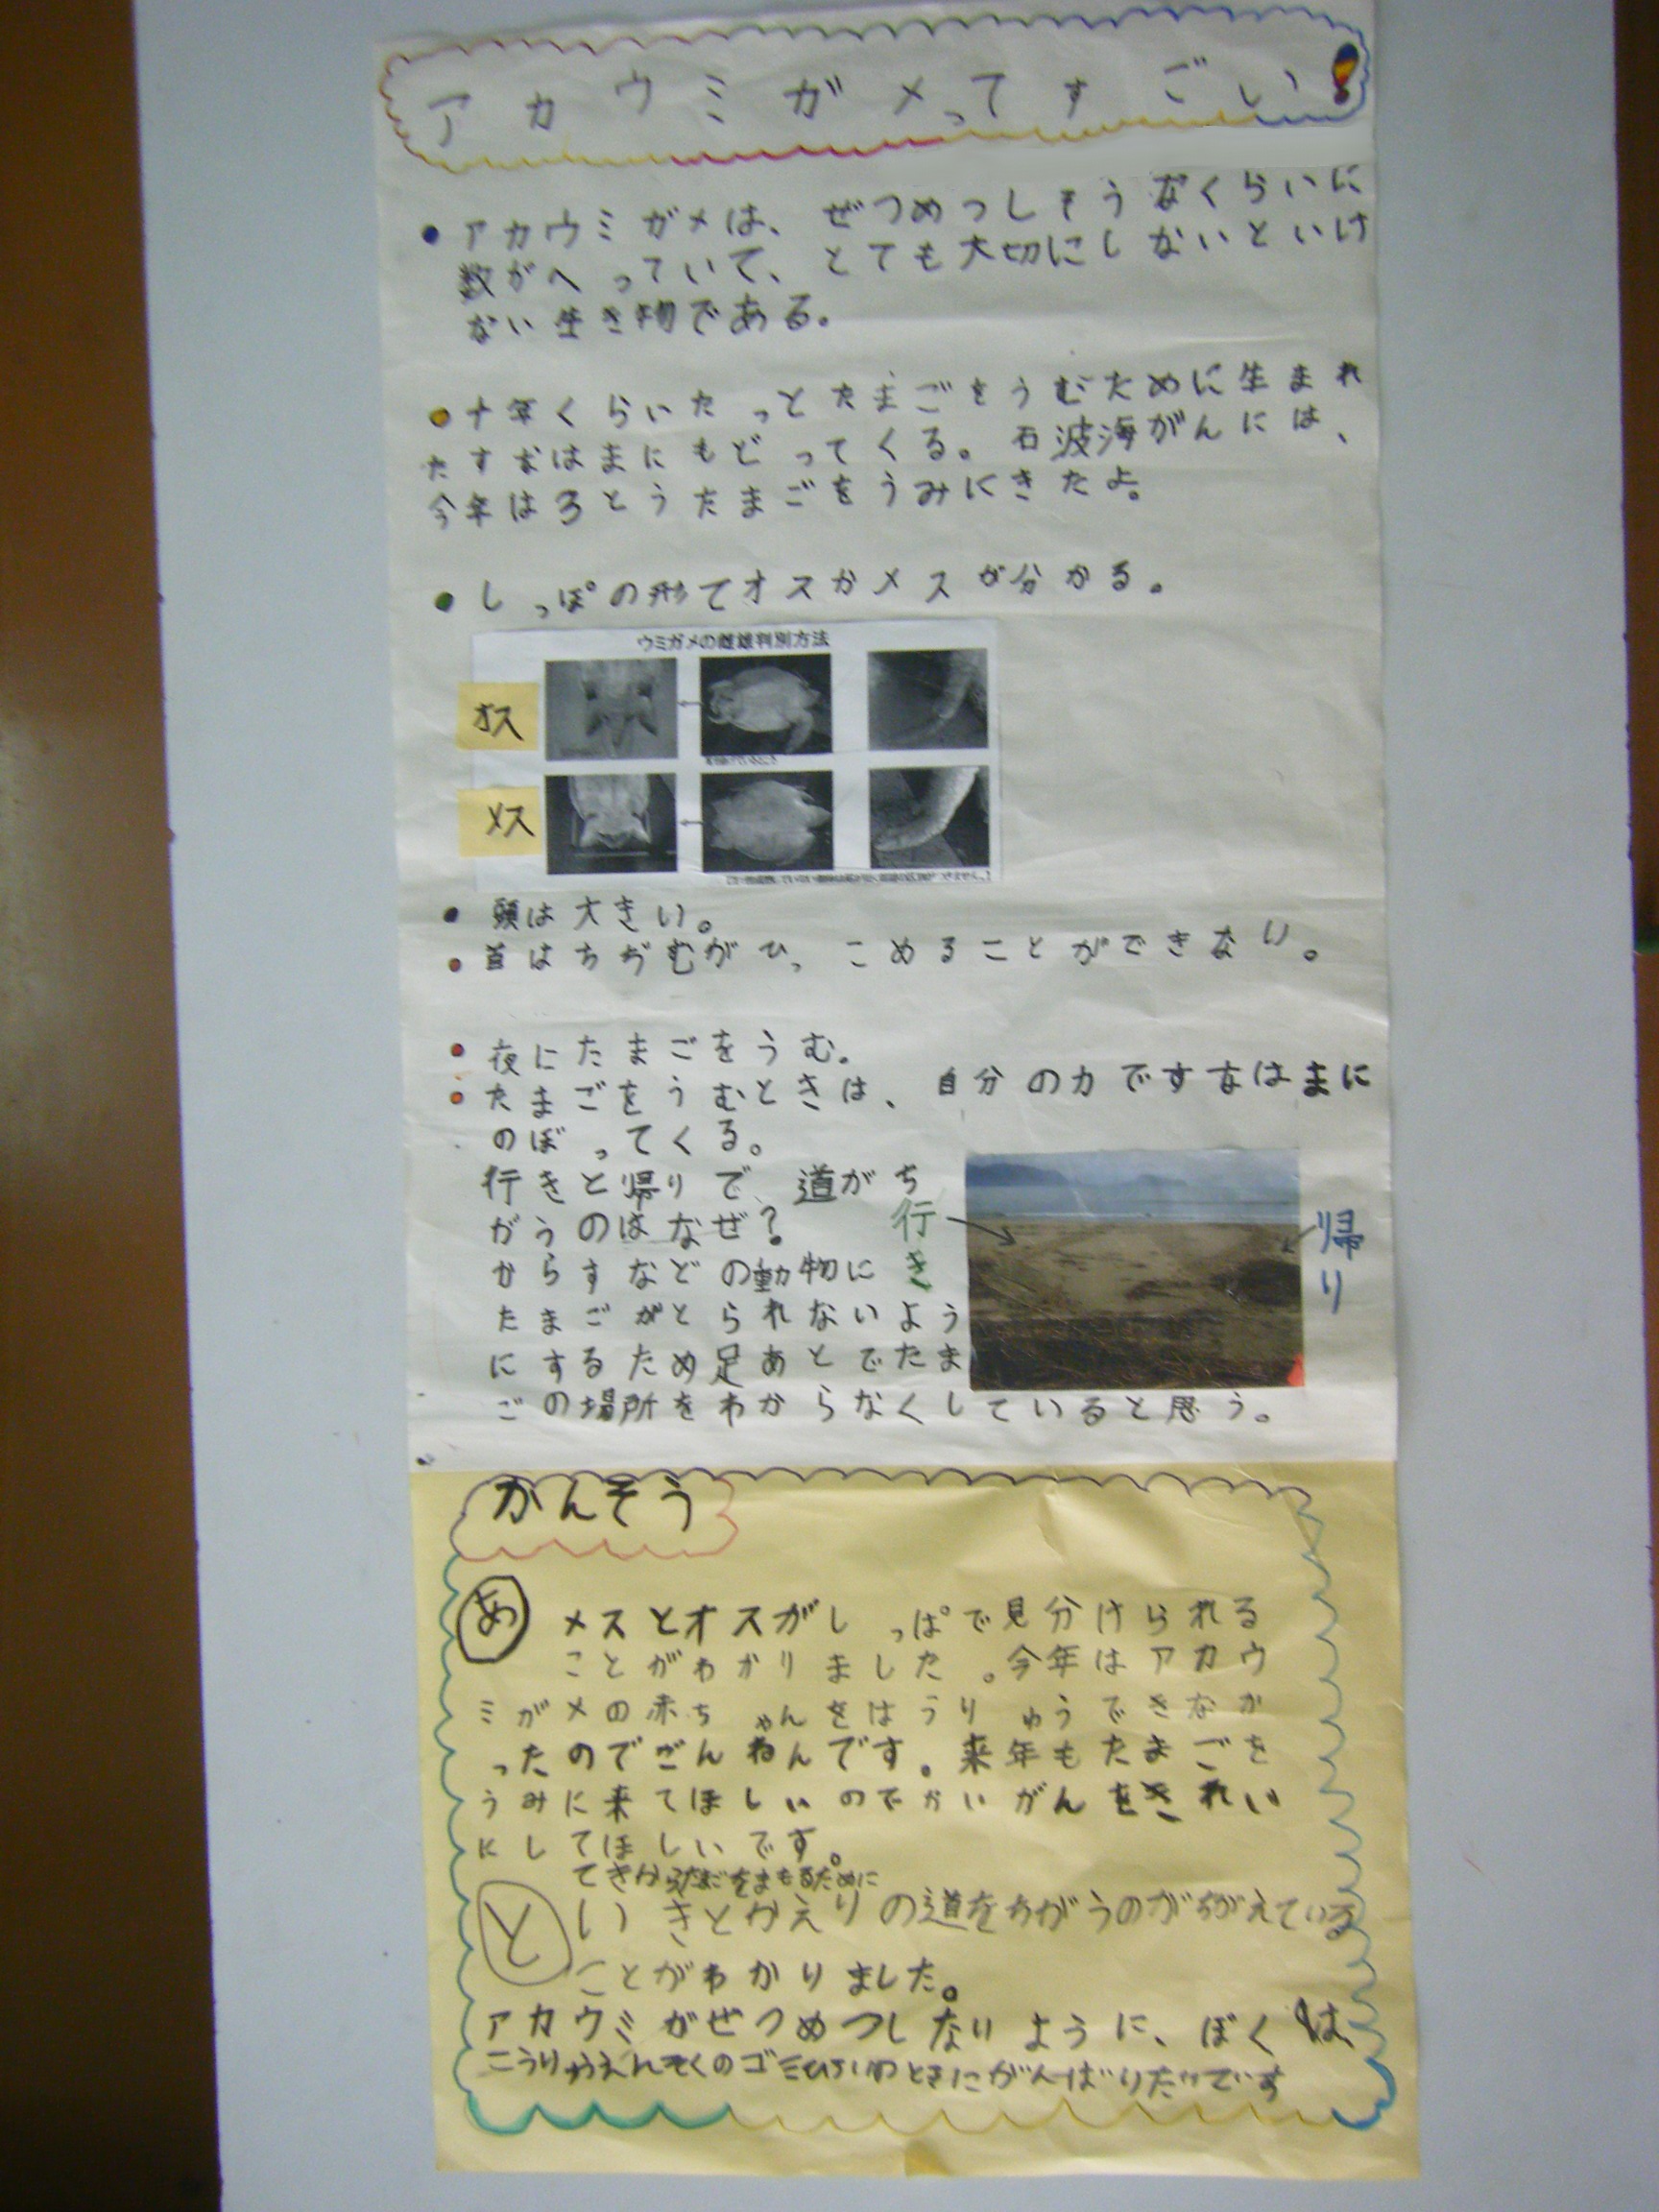 アカウミガメってすごい!
・アカウミガメは、ぜつめつしそうなくらいに
数がへっていて、とても大切にしないといけ
ない生き物である。
・十年くらいたっとたまごをうむために生まれ
たすなはまにもどってくる。石波海がんには、
今年は3とうたまごをうみにきたよ。
・しっぽの形てオスかメスが分かる。
ウミガメの雌雄判別方法
オス
メス
・頭は大きい。
・首はちぢむがひっこめることができない。
・夜にたまごをうむ。
・たまごをうむときは、自分の力ですなはまに
のぼってくる。
行きと帰りで、道がち
がうのはなぜ?
からすなどの動物に
たまごがとられないよう
にするため足あとでたま
ごの場所をわからなくしていると思う。
行き
帰り
かんそう
あ メスとオスがしっぱで見分けられる
ことがわかりました。今年はアカウ
ミガメの赤ちゃんをほうりゅうできなか
ったのでざんねんです。来年もたまごを
うみに来てほしいのでかいがんをきれい
にしてほしいです。
てきからたまごをまもるために
と いきとかえりの道をちがうのがちがえている
ことがわかりました。
アカウミがぜつめつしないように、ぼくは、
こうりゅうえんそくのゴミひろいのときにがんばりたいです